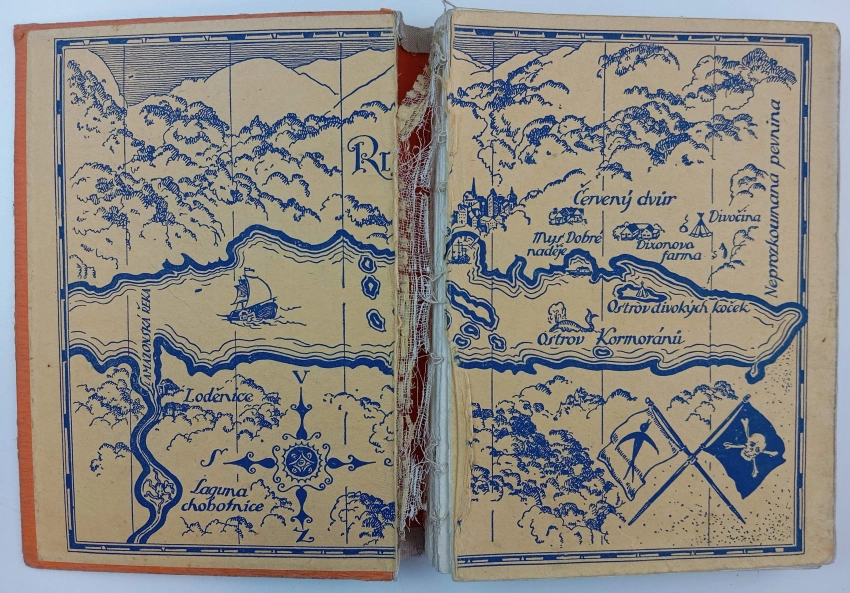 RI
Červený dvůr
Divočina
Mys Dobré
naděje
Dixonova
farma
Neprozkoumaná pevnina
Ostrov divokých koček
Ostrov Kormoránů
AMAZONSKÁ ŘEKA
Loděnice
Laguna
chobotnice
V
S
Z